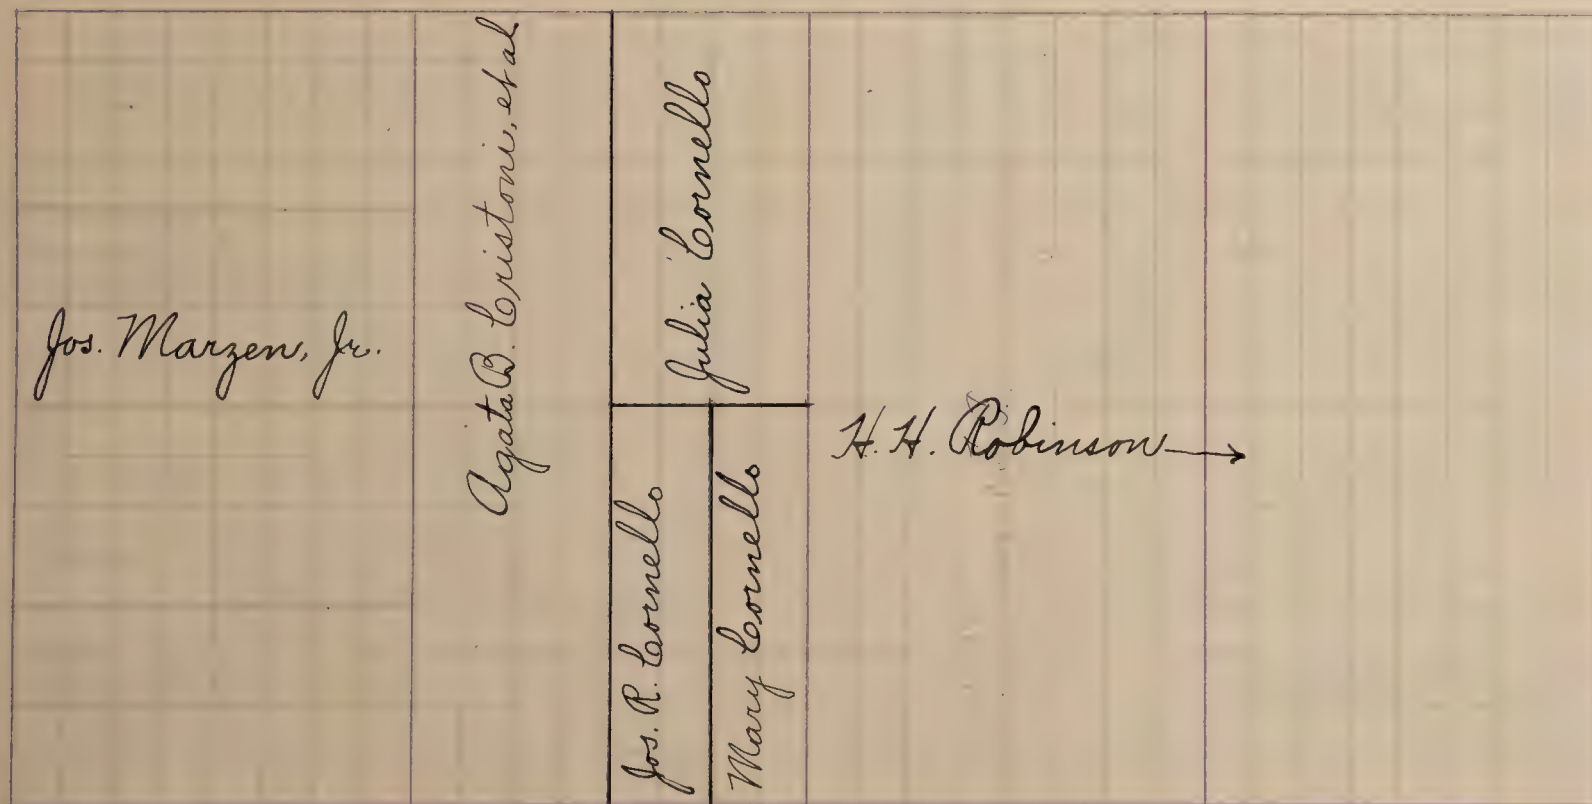 Jos. Marzen, Jr.
Agata B. Cristoni, et al
Julia Cornello
Jos. R. Cornello
Mary Cornello
H. H. Robinson